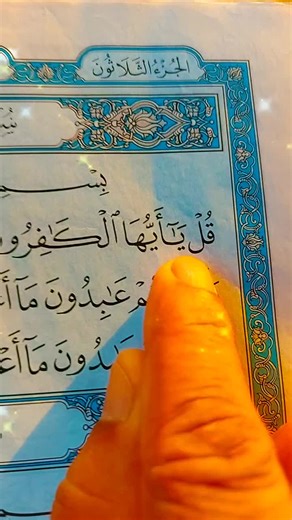 الجُزْءُ الثَّلَاثُونَ
بِسْمِ
قُلْ يَٰٓأَيُّهَا ٱلْكَٰفِرُو
عَٰبِدُونَ مَآ أَ
بِدُونَ مَآ أَعْ